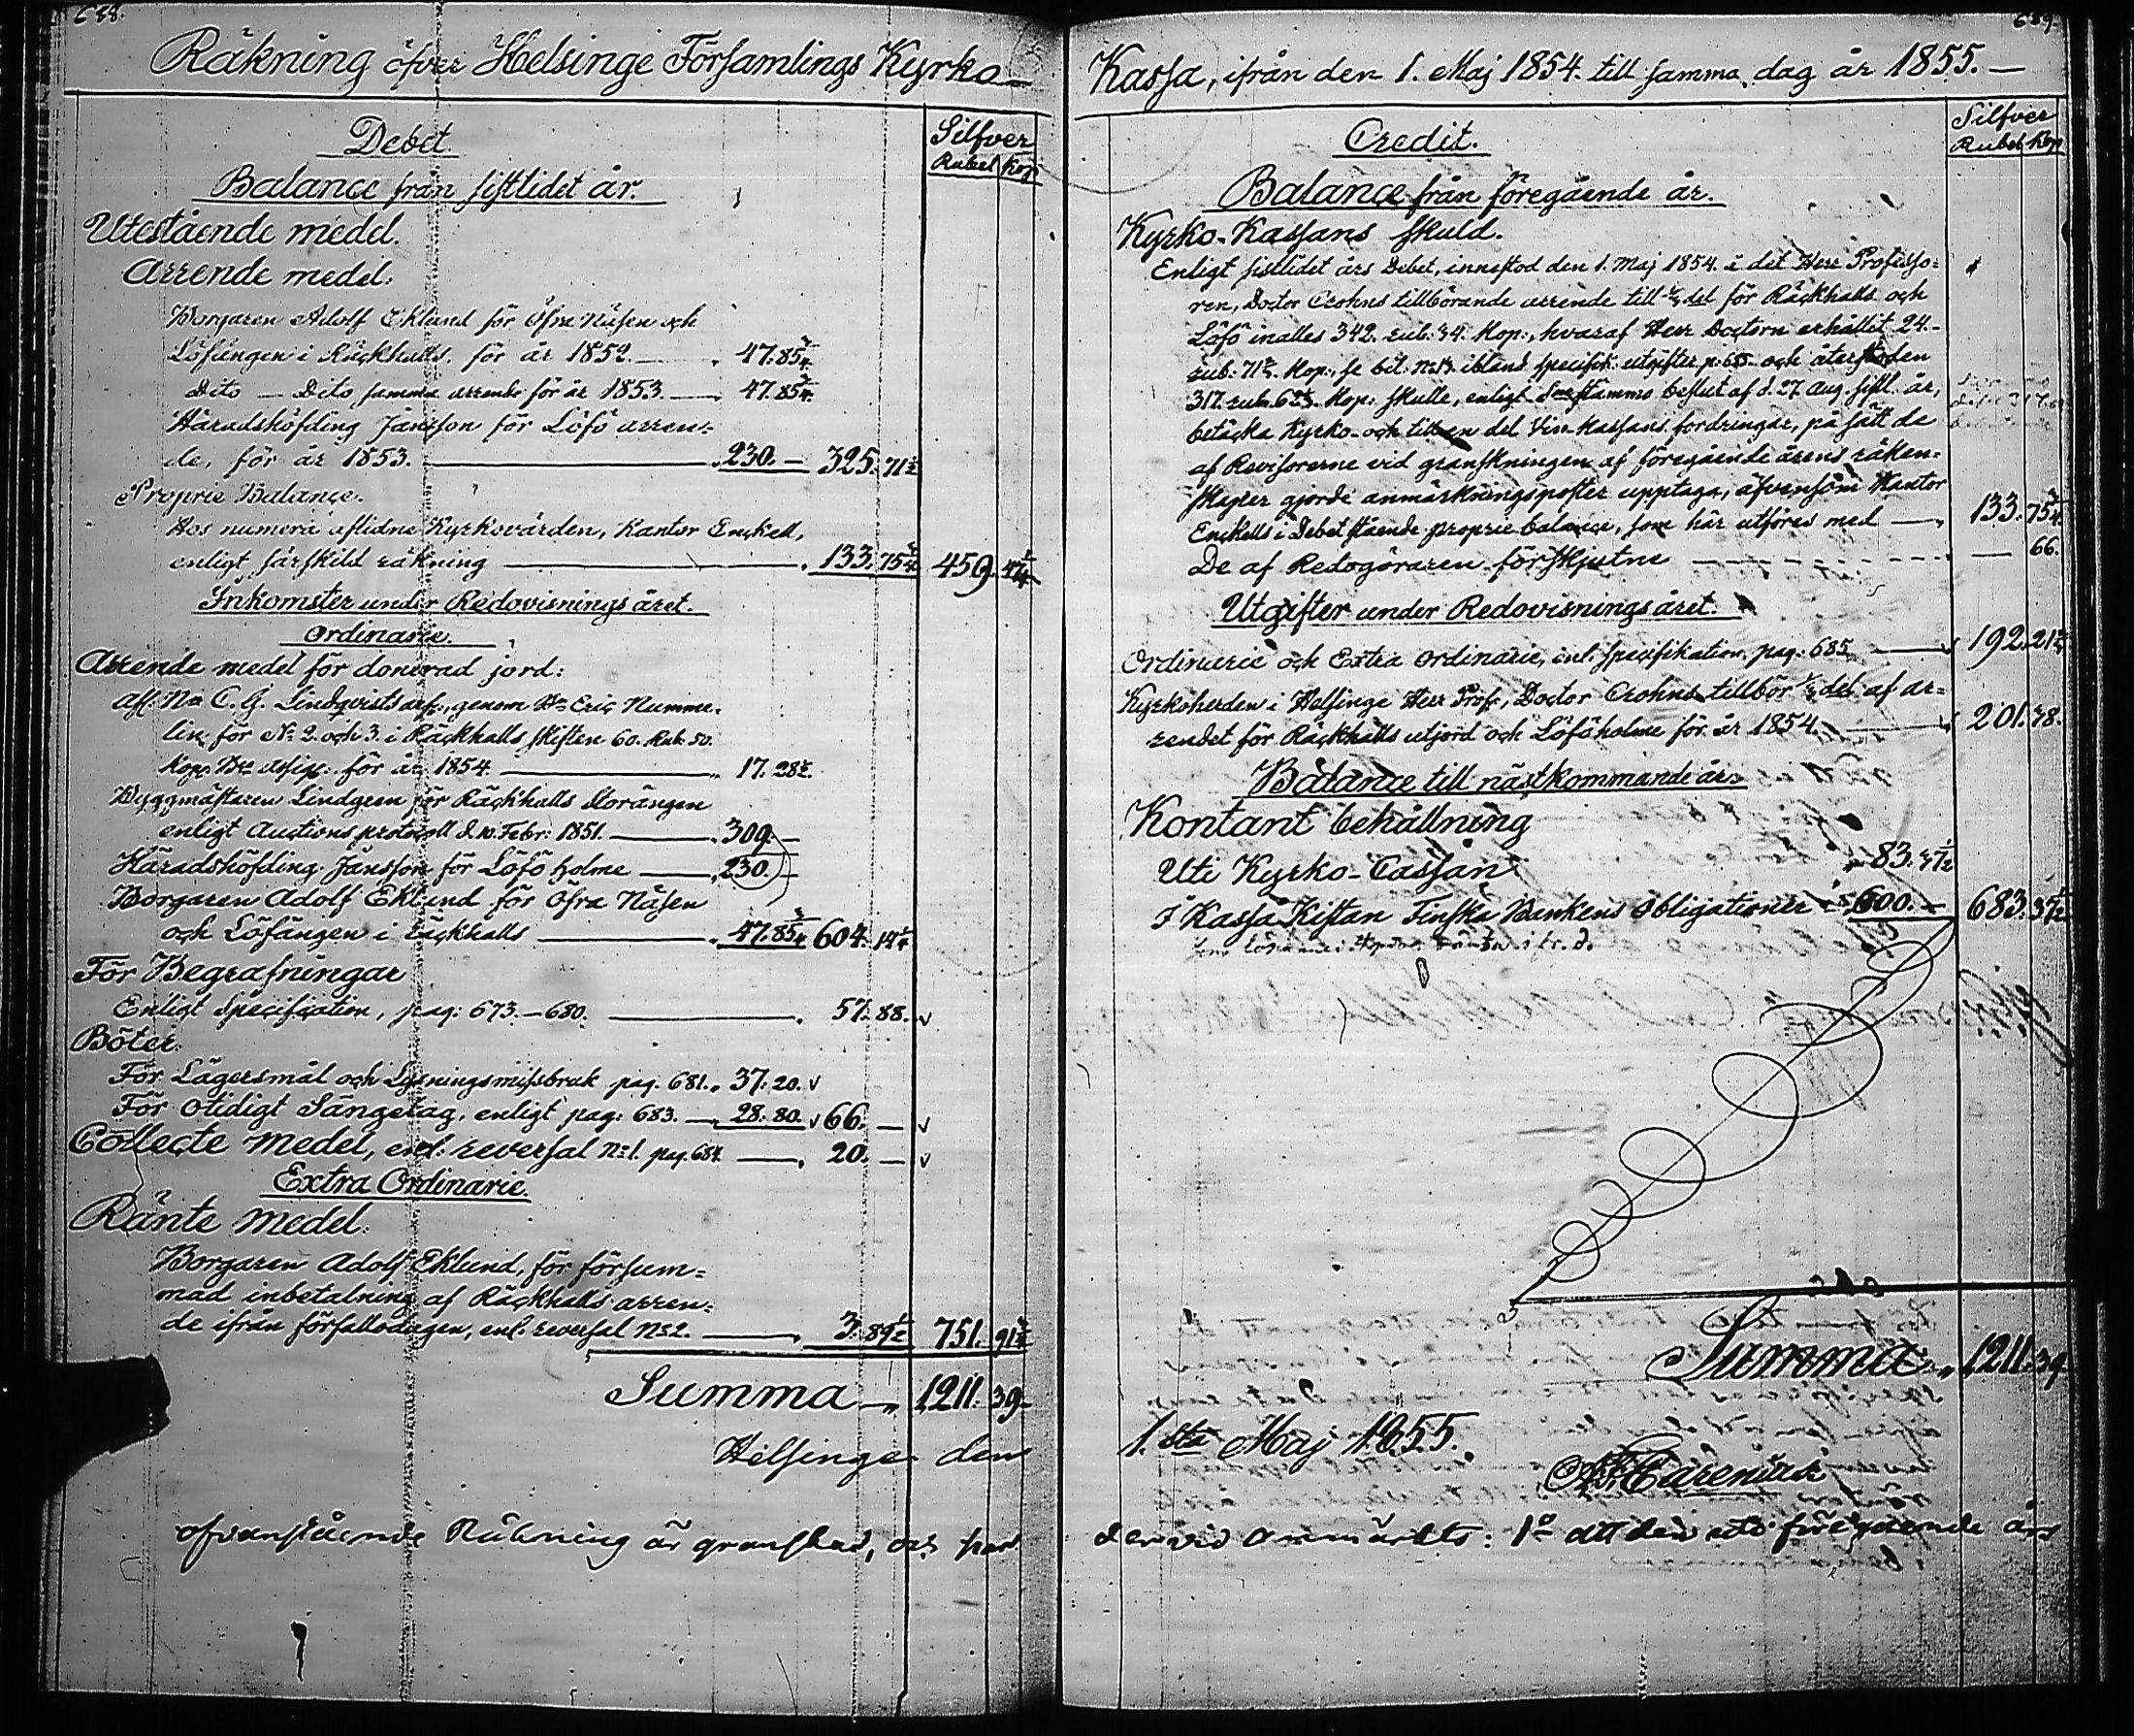 688.
Räkning öfver Helsinge Församlings Kyrko-
Debet.
Silfver
Rubel Kop
Balance från sistlidet år.
Utestående medel.
Arrende medel:
Borgaren Adolf Eklund för Öfra Näsen och
Löfängen i Räckhalls. för år 1852. — 47. 85 3/4.
Dito — Dito samma arrende för år 1853. — 47. 85 3/4.
Häradshöfding Jansson för Löfö arren-
de, för år 1853. — 230. — 325. 71 1/2
Proprie Balance.
Hos numera aflidne Kyrkovärden, Kantor Enckell,
enligt särskild räkning — 133. 75 3/4 459. 47 1/4
Inkomster under Redovisningsåret.
Ordinarie.
Arrende medel för donerad jord:
afl. C. G. Lindqvists arf:, genom Eric Numme-
lin för No 2. och 3. i Räckhalls skiften 60. Rub. 50.
kop. Bco assign. för år 1854. — 17. 28 1/2.
Byggmästaren Lindgren för Räckhalls Storängen
enligt Auctions protocoll d. 10. Febr: 1851. — 309. —
Häradshöfding Jansson för Löfö holme — 230. —
Borgaren Adolf Eklund för Öfra Näsen
och Löfängen i Räckhalls — 47. 85 3/4 604. 14 1/4
För Begrafningar
Enligt Specification, pag: 673.—680. — 57. 88.
Böter.
För Lägersmål och Lysningsmissbruk pag. 681. 37. 20.
För Otidigt Sängelag, enligt pag: 683. — 28. 80. 66. —
Collecte medel, enl. reversal No 1. pag. 684. — 20. —
Extra Ordinarie.
Ränte medel.
Borgaren Adolf Eklund, för försum-
mad inbetalning af Räckhalls arren-
de ifrån förfallodagen, enl. reversal No 2. — 3. 89 1/2 751. 91 3/4
Summa — 1211. 39.
Helsinge den
Ofvanstående Räkning är granskad, och har
689.
Kassa, ifrån den 1. Maj 1854. till samma dag år 1855. —
Credit.
Silfver
Rubel Kop
Balance från föregående år.
Kyrko-Kassans skuld.
Enligt sistlidet års Debet, innestod den 1. Maj 1854. å det Herr Professo-
ren, Doctor Crohns tillhörande arrende till 1/3 del för Räckhalls och
Löfö inalles 342. rub. 34. Kop:, hvaraf Herr Doctorn erhållit 24.
rub: 71 1/2. Kop:, se bil: ibland specifik: utgifter, p: 685 och återstoden
317. rub. 62 1/2. Kop: skulle, enligt Sockenstämmo beslut af d. 27. Aug. sistl. år,
betäcka Kyrko- och till en del Vin-kassans fordringar, på sätt de
af Revisorerne vid granskningen af föregående årens räken-
skaper gjorde anmärkningsposter upptaga, äfvensom Kantor
Enckells i Debet stående proprie balance, som här utföres med — 133. 75 3/4
De af Redogöraren förskjutne — 66.
Utgifter under Redovisningsåret.
Ordinarie och Extra Ordinarie, enl. specifikation. pag: 685 — 192. 21 3/4
Kyrkoherden i Helsinge Herr Prof:, Doctor Crohns tillhör 1/3 del af ar-
rendet för Räckhalls utjord och Löföholme för år 1854. — 201. 38.
Balance till nästkommande år.
Kontant behållning
Uti Kyrko-Cassan 83. 37 1/2
I Kassa Kistan Finska Bankens Obligationer 600. — 683. 37 1/2
Summa 1211. 39.
1.sta Maj 1855.
Carenius
dervid anmärkts: 1o att den uti föregående års